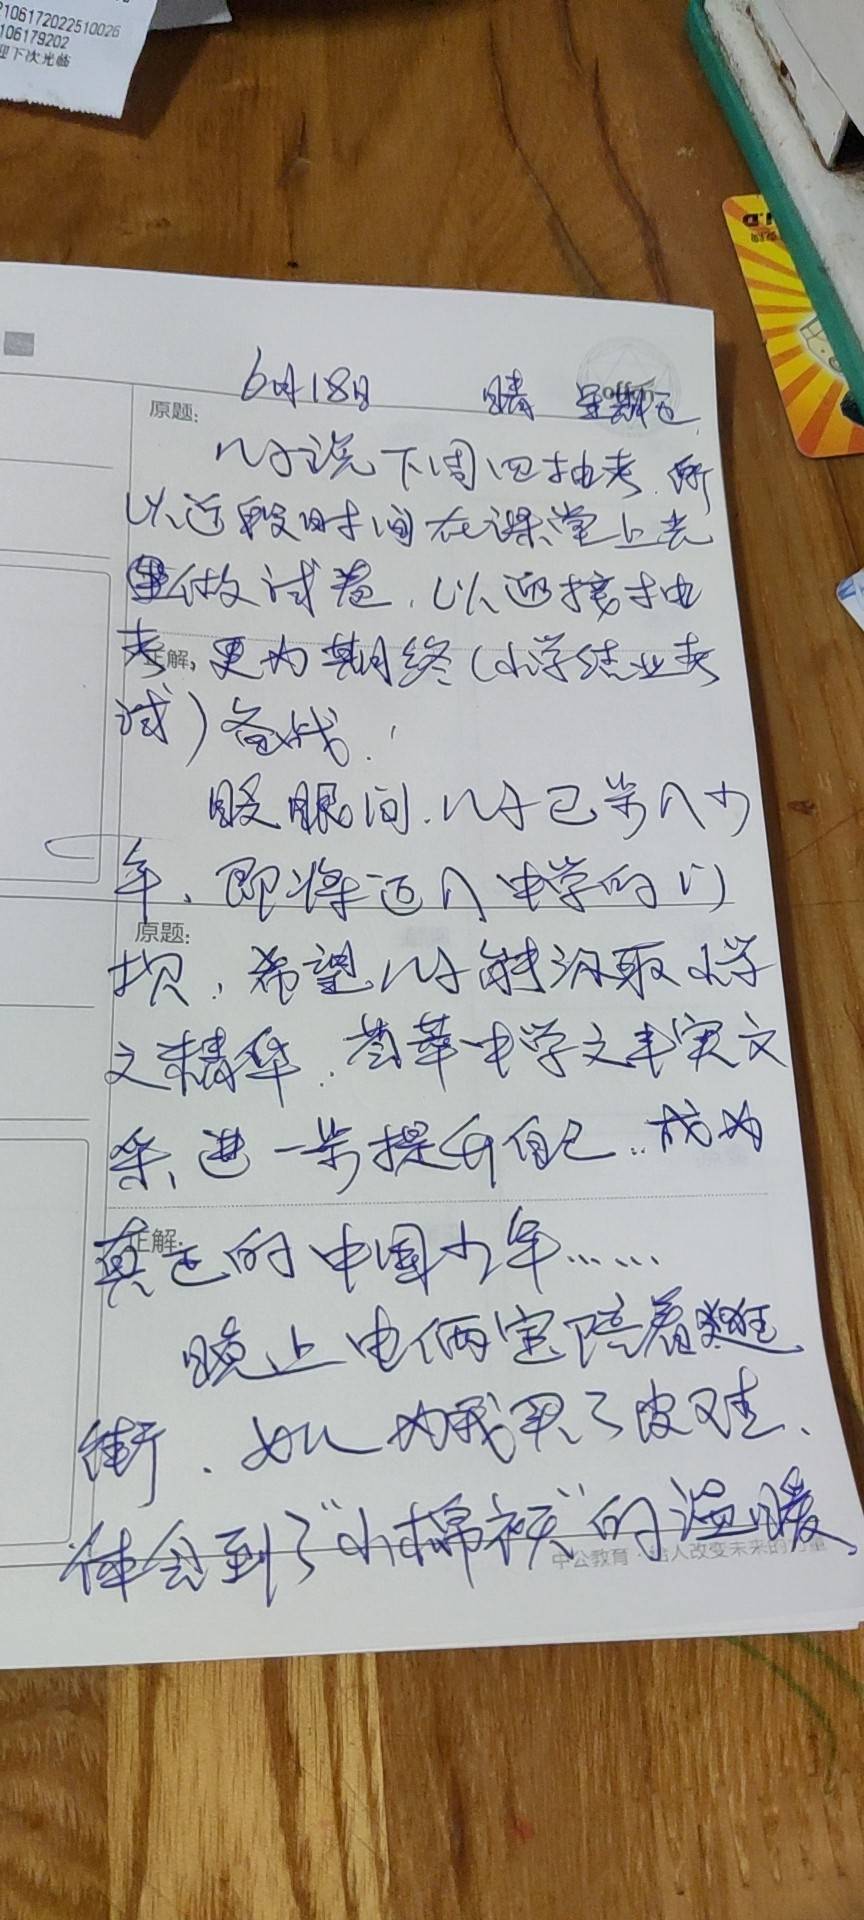 106172022510026
106179202
迎下次光临
offcn
6月18日 晴 星期五
原题:
儿子说下周四抽考,所
以近段时间在课堂上去
做试卷,以迎接抽
考,更为期终(小学结业考
正解:
试)备战.
眨眼间,儿子已步入少
年、即将迈入中学的门
原题:
坝,希望儿子能汲取小学
文精华,荟萃中学文丰实文
采,进一步提升自己,成为
正解:
真正的中国少年……
晚上由俩宝陪着逛
街、女儿为我买了皮鞋、
体会到了“小棉袄”的温暖
中公教育·给人改变未来的力量